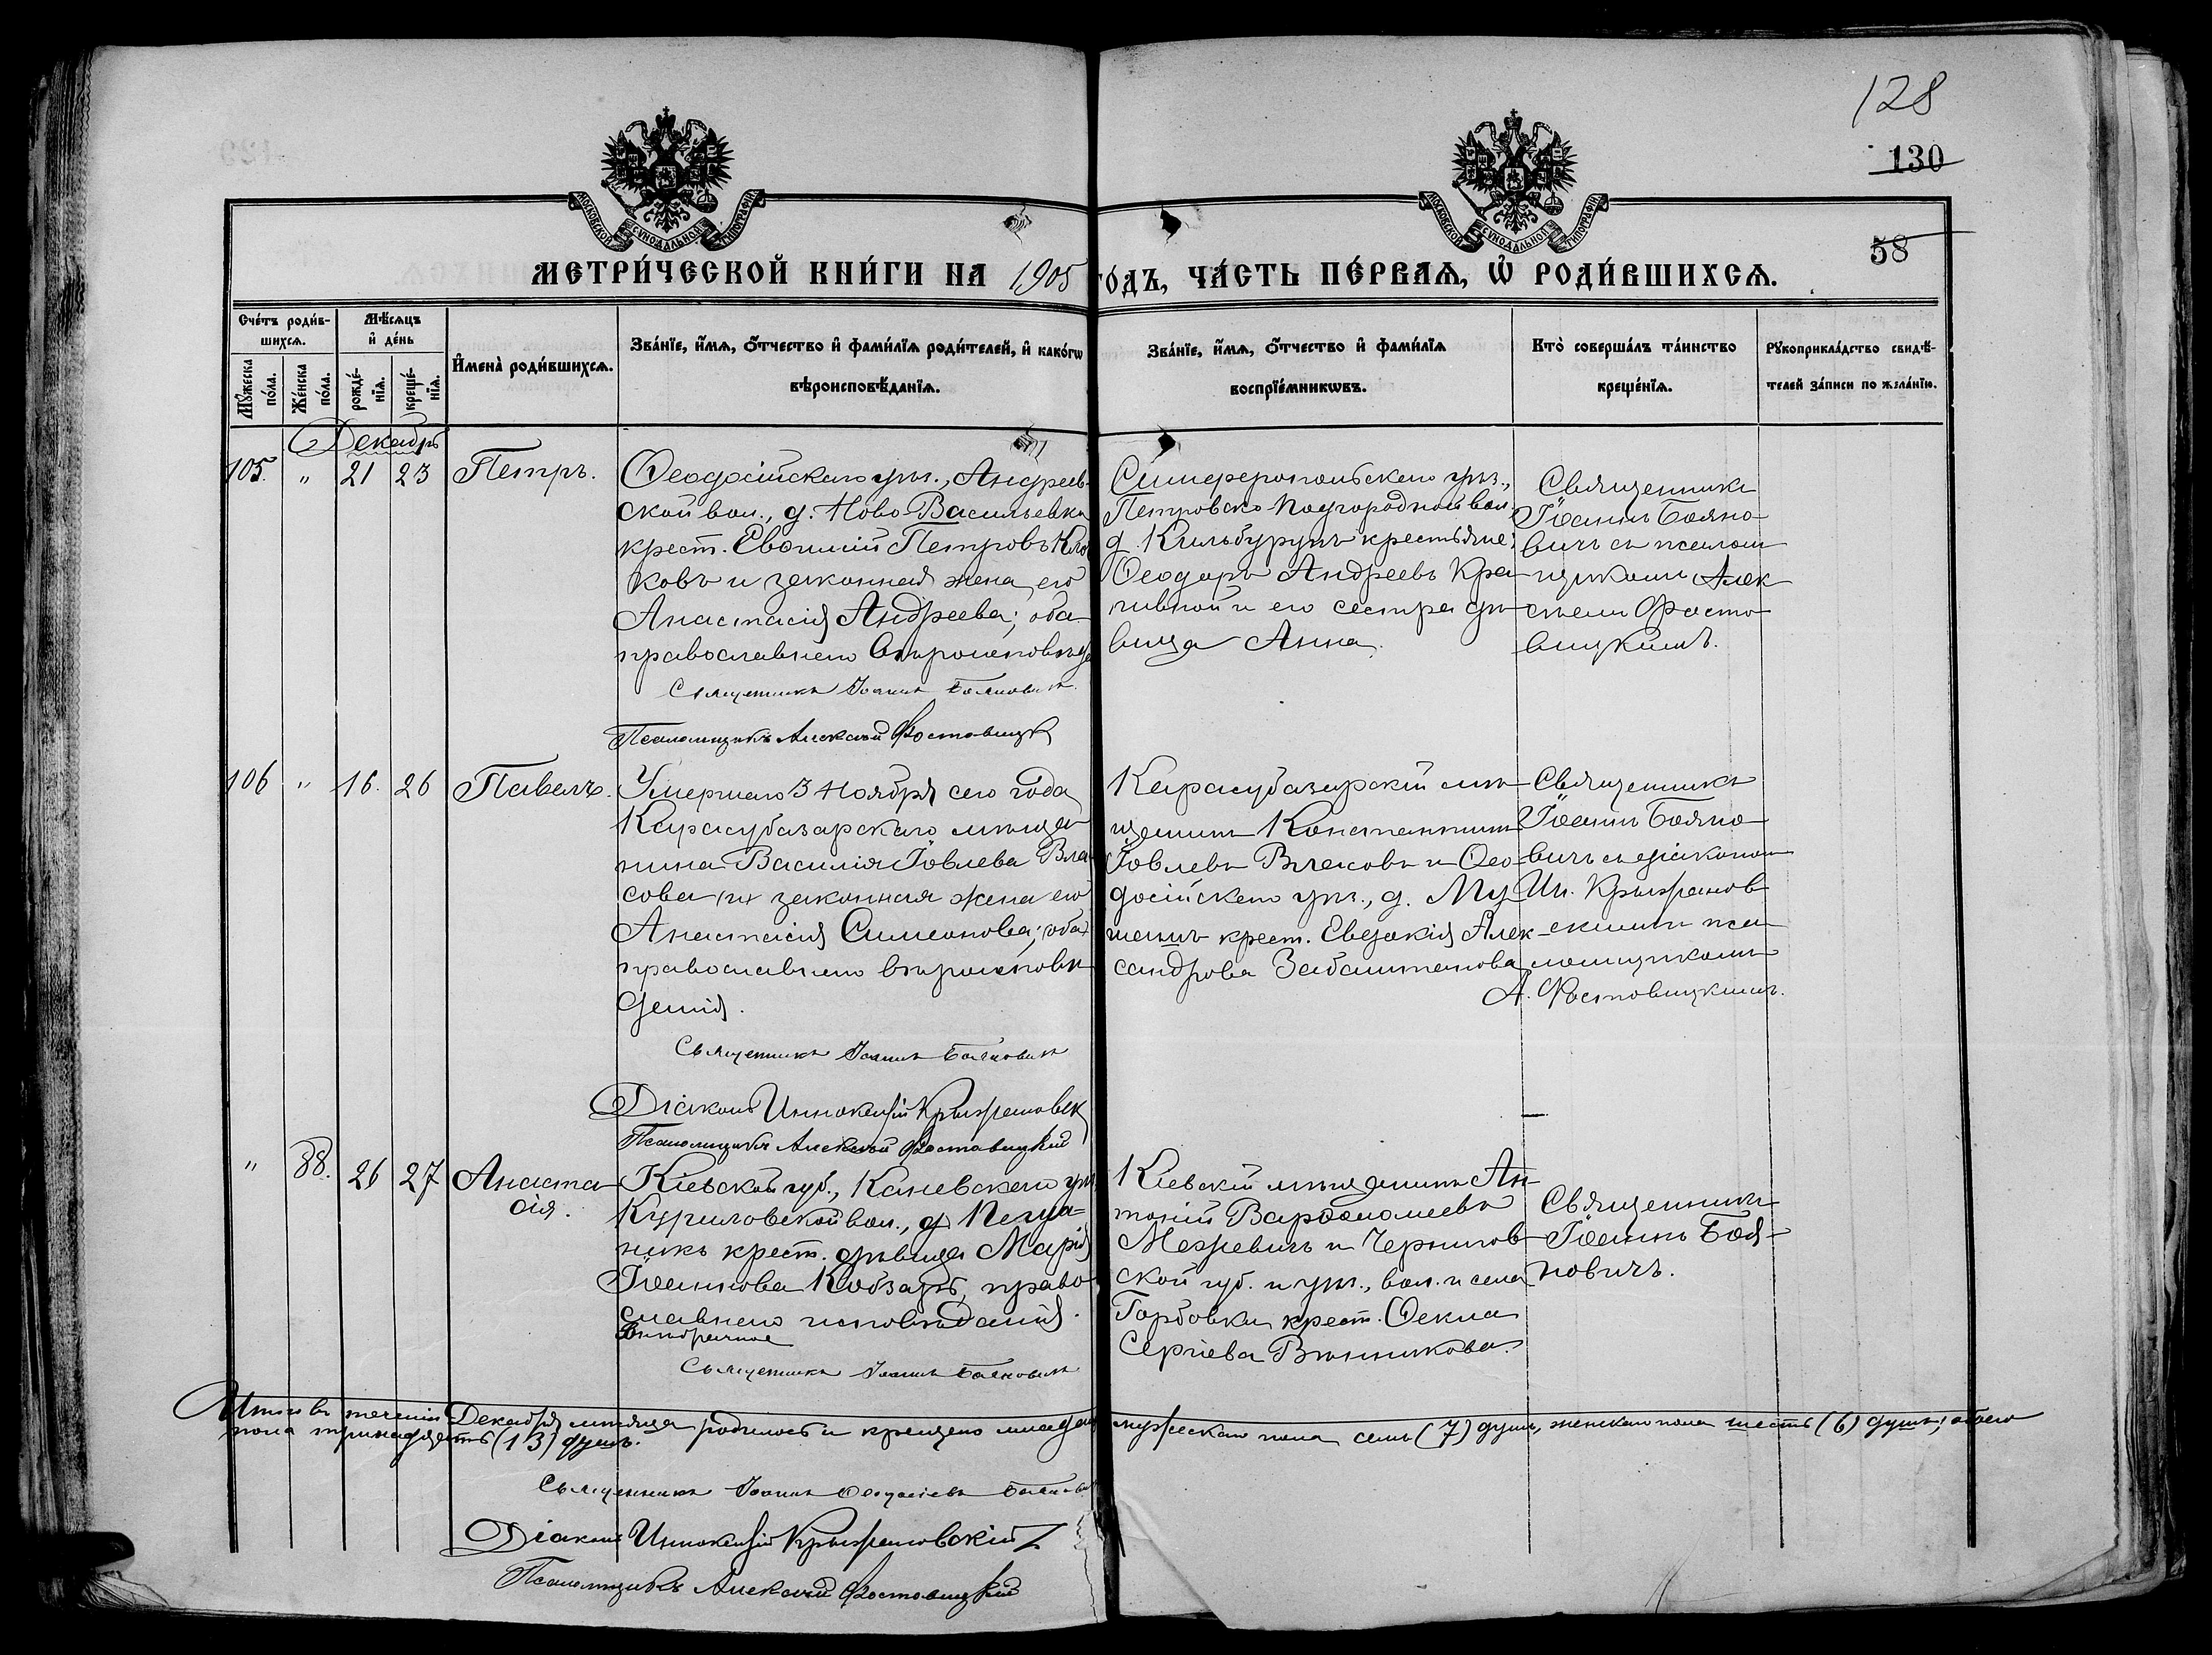 128
130
58
МОСКОВСКОЙ СѴНОДАЛЬНОЙ ТИПОГРАФІИ
МОСКОВСКОЙ СѴНОДАЛЬНОЙ ТИПОГРАФІИ
МЕТРИ́ЧЕСКОЙ КНИ́ГИ НА 1905 ГО́ДЪ, ЧА́СТЬ ПЕ́РВАѦ, Ѡ҆ РОДИ́ВШИХСѦ.
Сче́тъ роди́в-
шихсѧ.
Мꙋ́жеска по́ла.
Же́нска по́ла.
Мѣ́сѧцъ
и҆ де́нь
рожде́-
нїѧ.
креще́-
нїѧ.
И҆мена̀ роди́вшихсѧ.
Зва́нїе, и҆́мѧ, ѻ҆́тчество и҆ фамі́лїѧ роди́телей, и҆ како́гѡ
вѣроисповѣ́данїѧ.
Зва́нїе, и҆́мѧ, ѻ҆́тчество и҆ фамі́лїѧ
воспрїе́мникѡвъ.
Кто̀ соверша́лъ та́инство
креще́нїѧ.
Рꙋкоприкла́дство свидѣ́-
телей за́писи по жела́нїю.
Декабрь
105. " 21 23 Петръ.
Ѳеодосійскаго уѣз., Андреев-
ской вол., д. Ново-Васильевка
крест. Евѳимій Петровъ
ковъ и законная жена его
Анастасія Андреева; оба
православнаго вѣроисповѣда
Священникъ Іоаннъ Бояновичъ
Псаломщикъ Алексѣй Фостовицк
Симферопольскаго уѣз.,
Петровско-Подгородной вол.
д. Кильбурунъ крестьяне:
Ѳеодоръ Андреевъ Кра-
пивной и его сестра дѣ-
вица Анна.
Священникъ
Іоаннъ Бояно-
вичъ съ псалом-
щикомъ Алек-
сѣемъ Фосто-
вицкимъ.
106 " 16. 26 Павелъ.
Умершаго 3 Ноября сего года
Карасубазарскаго мѣща-
нина Василія Іовлева Вла-
сова и законная жена его
Анастасія Симеонова; оба
православнаго вѣроисповѣ-
данія.
Священникъ Іоаннъ Бояновичъ
Діаконъ Иннокентій Крыжановск
Псаломщикъ Алексѣй Фостовицкій
Карасубазарскій мѣ-
щанинъ Константинъ
Іовлевъ Власовъ и Ѳео-
досійскаго уѣз., д. Му-
шашъ крест. Евдокія Алек-
сандрова Забаштанова
Священникъ
Іоаннъ Бояно-
вичъ съ діакономъ
Ин. Крыжанов-
скимъ и пса-
ломщикомъ
А. Фостовицкимъ.
" 88. 26 27 Анаста-
сія.
Кіевской губ., Каневскаго уѣз.
Куриловской вол., д.
крест. дѣвица Марія
Іоаннова Кобзарь, право-
славнаго исповѣданія.
Внѣбрачное
Священникъ Іоаннъ Бояновичъ
Кіевскій мѣщанинъ Ан-
тоній Варѳоломеевъ
и Чернигов-
ской губ. и уѣз., вол. и села
Горбовки крест. Ѳекла
Сергіева Винникова.
Священникъ
Іоаннъ Боя-
новичъ.
Итого въ теченіи Декабря мѣсяца родилось и крещено младен мужескаго пола семь (7) душъ, женскаго пола шесть (6) душъ; обоего
пола тринадцать (13) душъ.
Священникъ Іоаннъ Ѳеодосіевъ Боянов
Діаконъ Иннокентій Крыжановскій
Псаломщикъ Алексѣй Фостовицкій